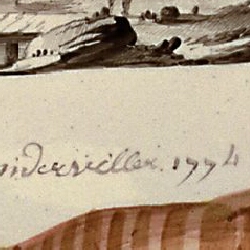 niderviller. 1774